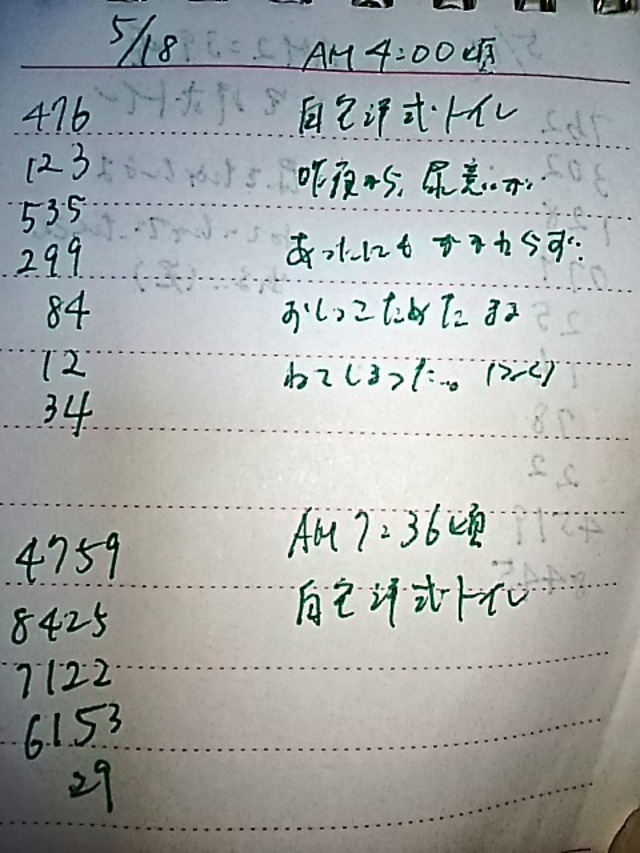 5/18 AM 4:00頃
476 自宅洋式トイレ
123 昨夜から、尿意が
535 あったにもかかわらず、
299
84 おしっこためたまま
12 ねてしまった…。
34
4759 AM 7:36頃
8425 自宅洋式トイレ
7122
6153
29